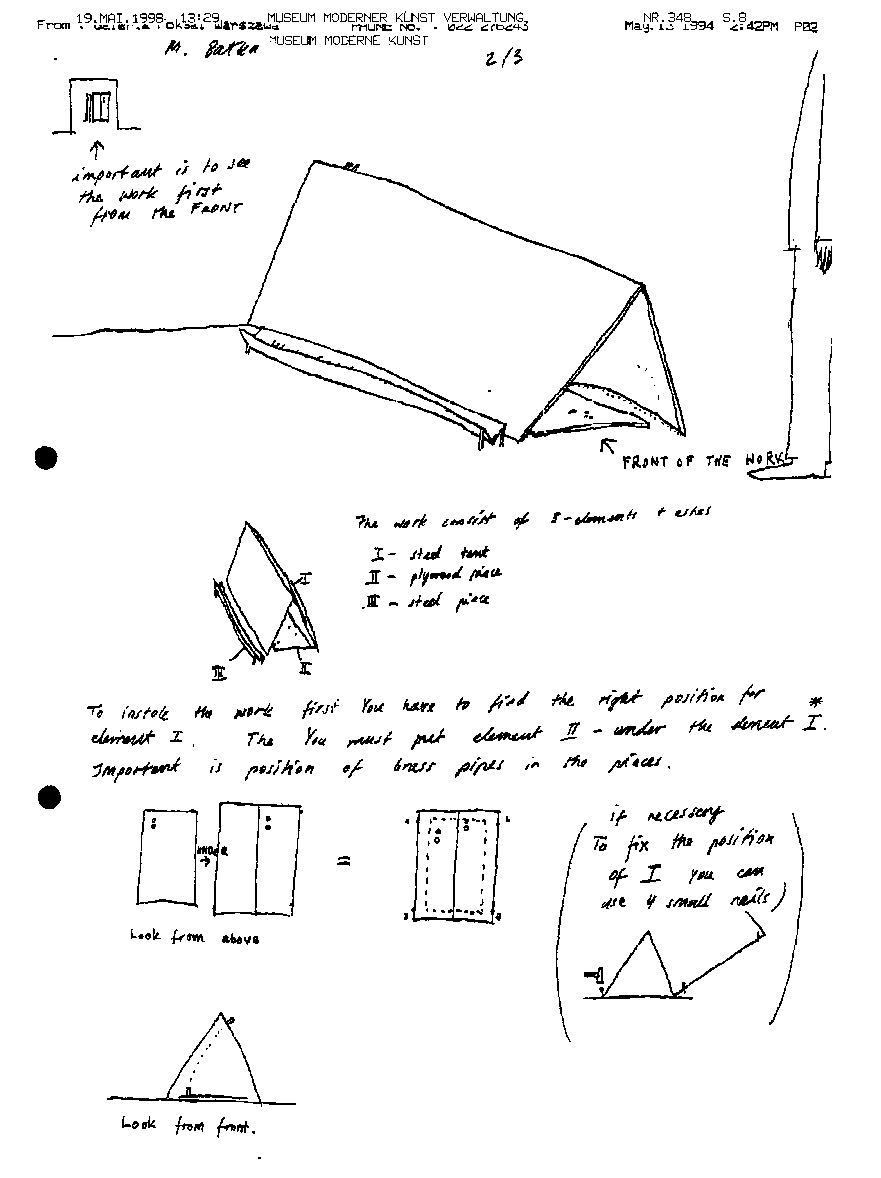 19.MAI.1998 13:29 MUSEUM MODERNER KUNST VERWALTUNG NR.348 S.8
From : Galeria Foksal Warszawa PHONE NO. : 022 276243 May. 13 1994 2:42PM P02
MUSEUM MODERNE KUNST
M. Bałka 2/3
important is to see
the work first
from the FRONT
FRONT OF THE WORK
The work consist of 3-elements + ashes
I - steel tent
II - plywood piece
III - steel piece
I
III
II
To instole the work first You have to find the right position for
element I. The You must put element II - under the element I. *
Important is position of brass pipes in the pieces.
UNDER
=
Look from above
if necessery
To fix the position
of I You can
use 4 small nails)
Look from front.